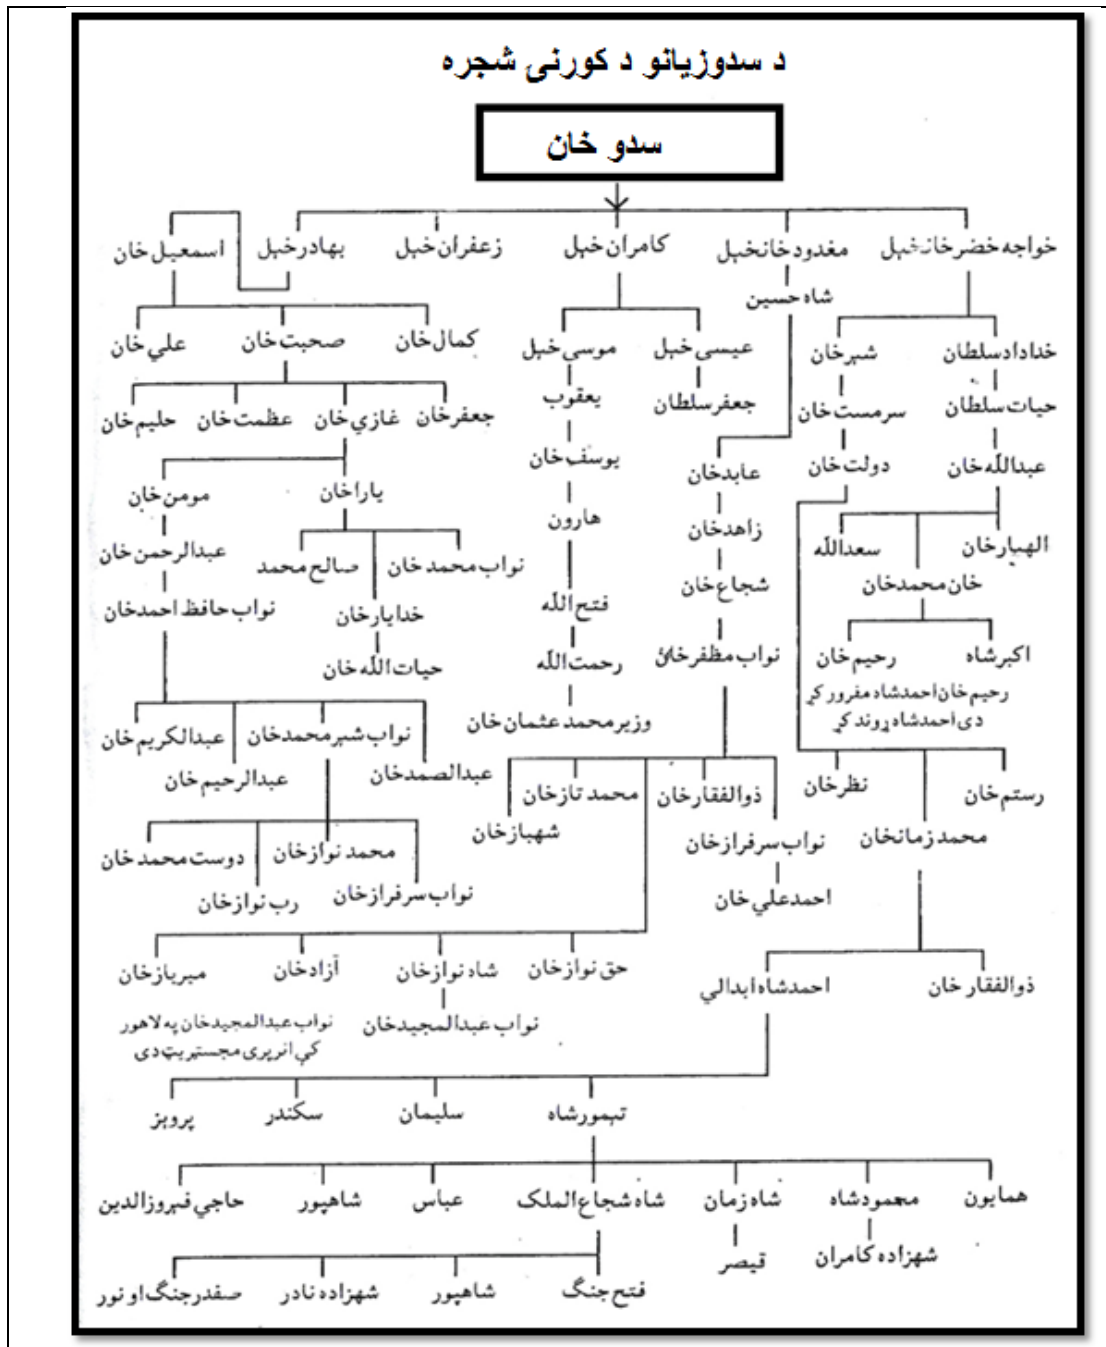 د سدوزيانو د کورنۍ شجره
سدو خان
خواجه خضرخانخېل
مغدودخانخېل
کامران خېل
زعفران خېل
بهادرخېل
اسمعيل خان
شاه حسين
خدادادسلطان
شېرخان
عيسی خېل
موسی خېل
کمال خان
صحبت خان
علي خان
حيات سلطان
سرمست خان
جعفرسلطان
يعقوب
جعفرخان
غازي خان
عظمت خان
حليم خان
عبدالله خان
دولت خان
عابدخان
يوسف خان
ياراخان
مومن خان
الهيارخان
سعدالله
زاهدخان
هارون
نواب محمدخان
صالح محمد
عبدالرحمن خان
خان محمدخان
شجاع خان
فتح الله
خدايارخان
نواب حافظ احمدخان
اکبرشاه
رحيم خان
نواب مظفرخان
رحمت الله
حيات الله خان
رحيم خان احمدشاه مفرور کړ
دی احمدشاه ړوند کړ
وزيرمحمدعثمان خان
نواب شېرمحمدخان
عبدالکريم خان
عبدالصمدخان
عبدالرحيم خان
رستم خان
نظرخان
ذوالفقارخان
محمد تازخان
شهبازخان
محمدزمانخان
نواب سرفرازخان
محمد نوازخان
دوست محمدخان
احمدعلي خان
نواب سرفرازخان
رب نوازخان
حق نوازخان
شاه نوازخان
آزادخان
ميربازخان
ذوالفقارخان
احمدشاه ابدالي
نواب عبدالمجيدخان
نواب عبدالمجيدخان په لاهور
کې انريری مجستريټ دی
تيمورشاه
سليمان
سکندر
پرويز
همايون
محمودشاه
شاه زمان
شاه شجاع الملک
عباس
شاهپور
حاجي فيروزالدين
شهزاده کامران
قيصر
فتح جنگ
شاهپور
شهزاده نادر
صفدرجنگ او نور